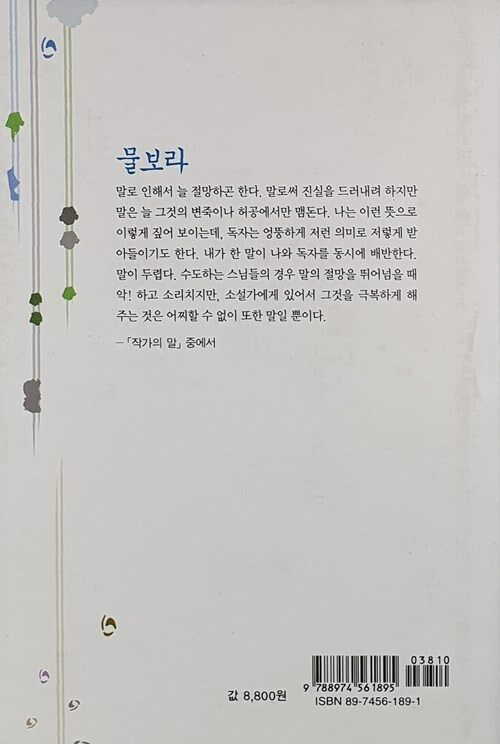 물보라
말로 인해서 늘 절망하곤 한다. 말로써 진실을 드러내려 하지만
말은 늘 그것의 변죽이나 허공에서만 맴돈다. 나는 이런 뜻으로
이렇게 짚어 보이는데, 독자는 엉뚱하게 저런 의미로 저렇게 받
아들이기도 한다. 내가 한 말이 나와 독자를 동시에 배반한다.
말이 두렵다. 수도하는 스님들의 경우 말의 절망을 뛰어넘을 때
악! 하고 소리치지만, 소설가에게 있어서 그것을 극복하게 해
주는 것은 어찌할 수 없이 또한 말일 뿐이다.
─「작가의 말」 중에서
값 8,800원
03810
9 788974 561895
ISBN 89-7456-189-1